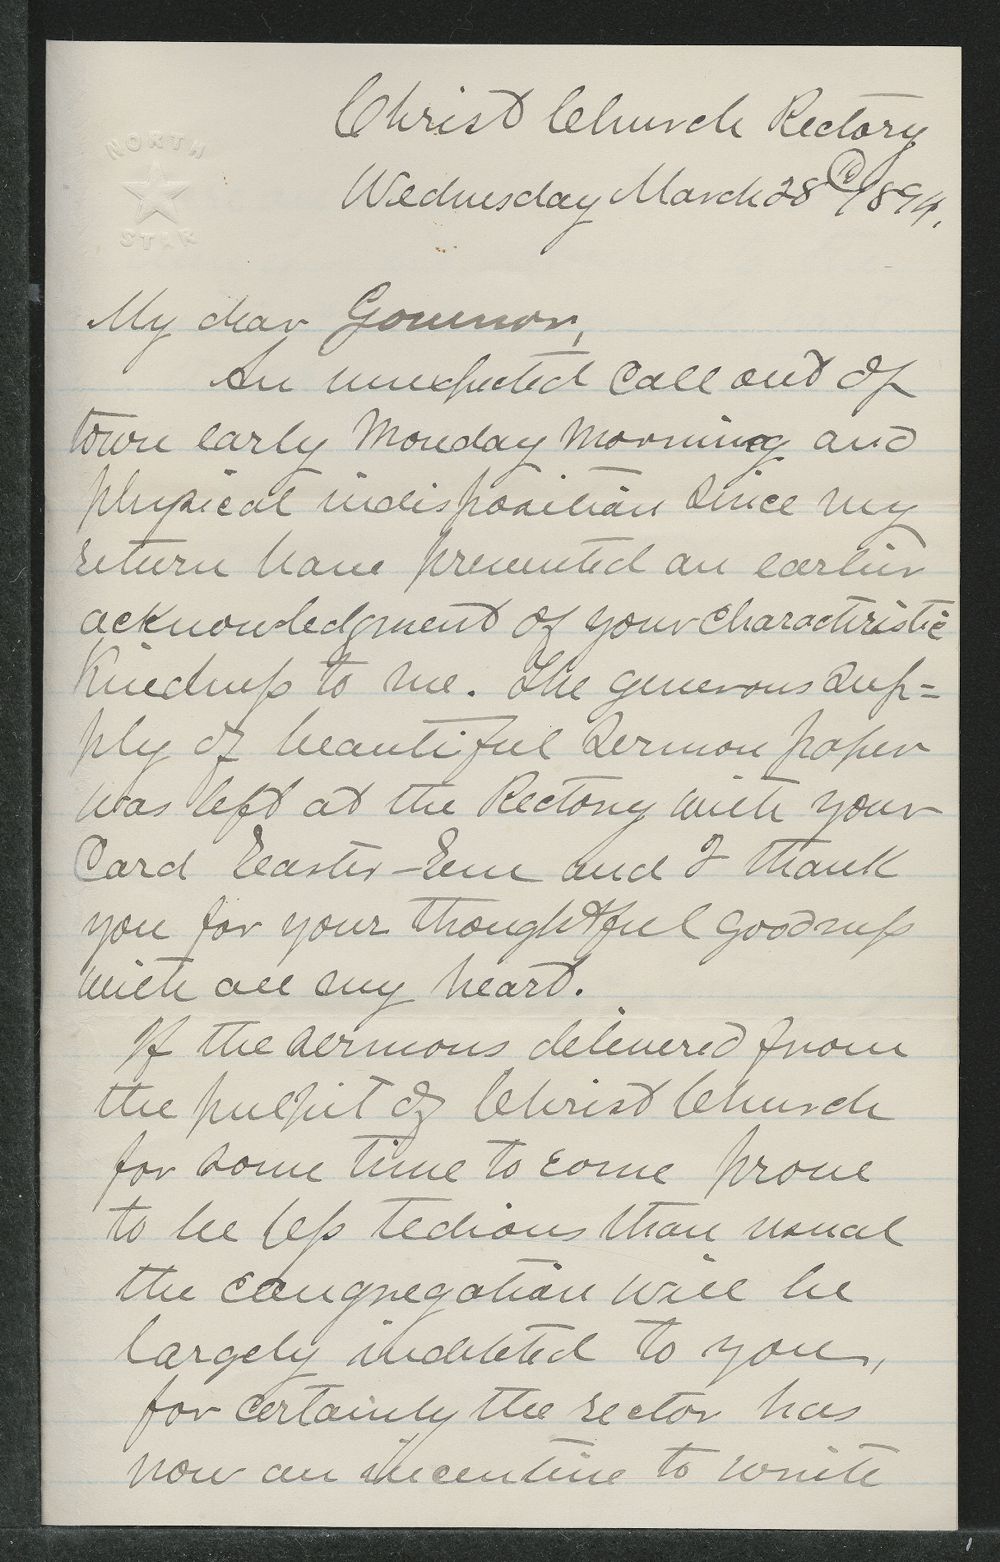 NORTH
STAR
Christ Church Rectory
Wednesday March 28th 1894.
My dear Governor,
An unexpected call out of
town early Monday morning and
physical indisposition since my
return have prevented an earlier
acknowledgment of your characteristic
kindness to me. The generous sup=
ply of beautiful sermon paper
was left at the Rectory with your
Card Easter-Even and I thank
you for your thoughtful goodness
with all my heart.
If the sermons delivered from
the pulpit of Christ Church
for some time to come prove
to be less tedious than usual
the congregation will be
largely indebted to you,
for certainly the rector has
now an incentive to write